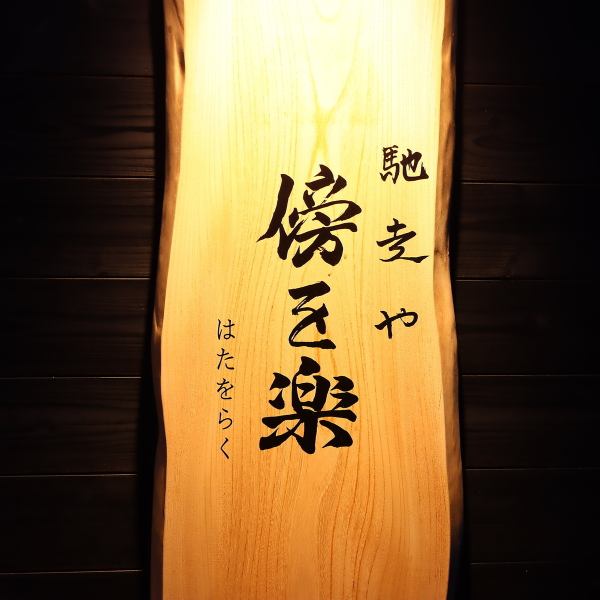 馳走や
傍を楽
はたをらく